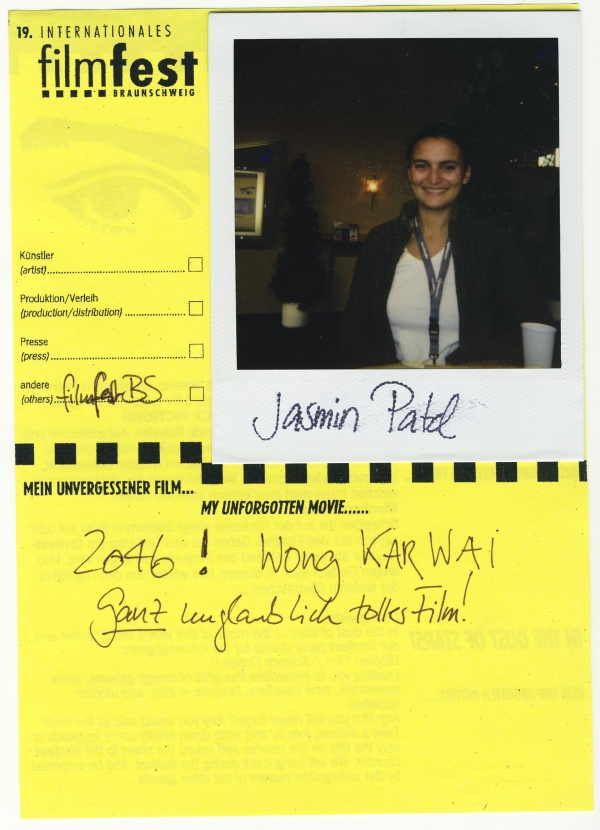 19. INTERNATIONALES
filmfest
BRAUNSCHWEIG
Künstler
(artist)
Produktion/Verleih
(production/distribution)
Presse
(press)
andere
(others) filmfest BS
Jasmin Patel
MEIN UNVERGESSENER FILM...
MY UNFORGOTTEN MOVIE......
2046! Wong KAR WAi
Ganz unglaublich toller Film!